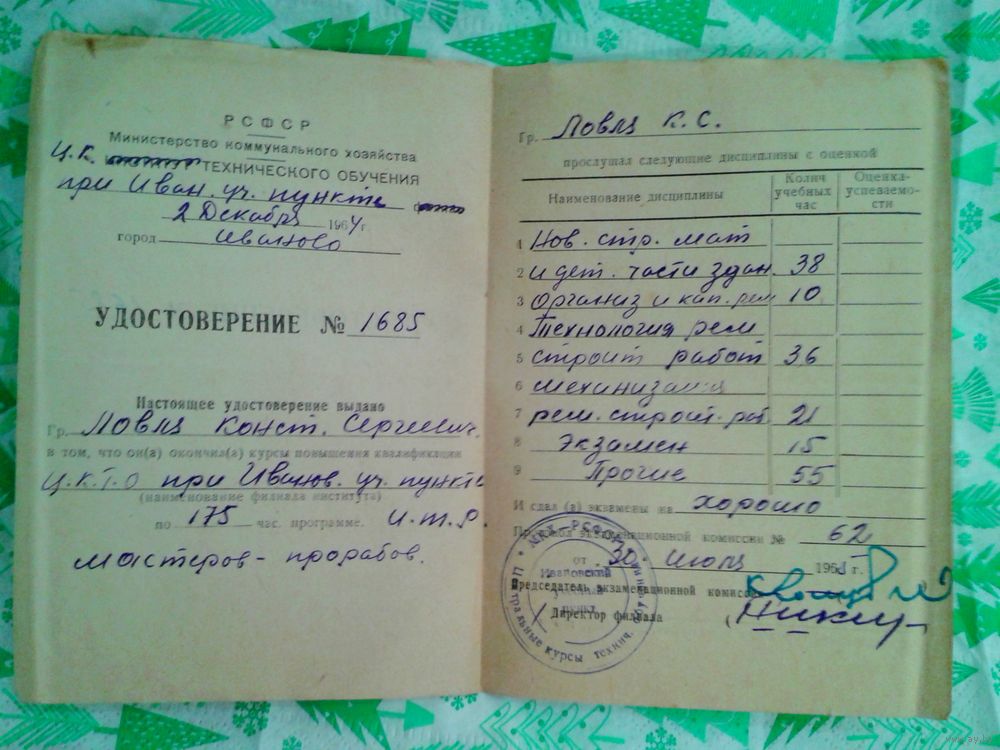 РСФСР
Министерство коммунального хозяйства
Ц.К. ТЕХНИЧЕСКОГО ОБУЧЕНИЯ
при Иван. уч. пункте
2 Декабря 1964 г.
город Иваново
УДОСТОВЕРЕНИЕ № 1685
Настоящее удостоверение выдано
Гр. Ловля Конст. Сергеевич.
в том, что он(а) окончил(а) курсы повышения квалификации
Ц.К.Т.О при Иванов. уч. пункте
(наименование филиала института)
по 175 час. программе. И.т.Р.
мастеров - прорабов.
Гр. Ловля К. С.
прослушал следующие дисциплины с оценкой
Наименование дисциплины
Колич учебных час
Оценка успеваемости
1 Нов. стр. мат
2 и дет. части здан. 38
3 Организ и кап. рем 10
4 Технология рем
5 строит работ 36
6 механизация
7 рем. строит. раб 21
8 Экзамен 15
9 Прочие 55
И сдал (а) экзамены на хорошо
Протокол экзаменационной комиссии № 62
от 30 июля 196 г.
Председатель экзаменационной комиссии
Директор филиала
МКХ-РСФСР
Центральные курсы технич.
Ивановский
учебный
пункт